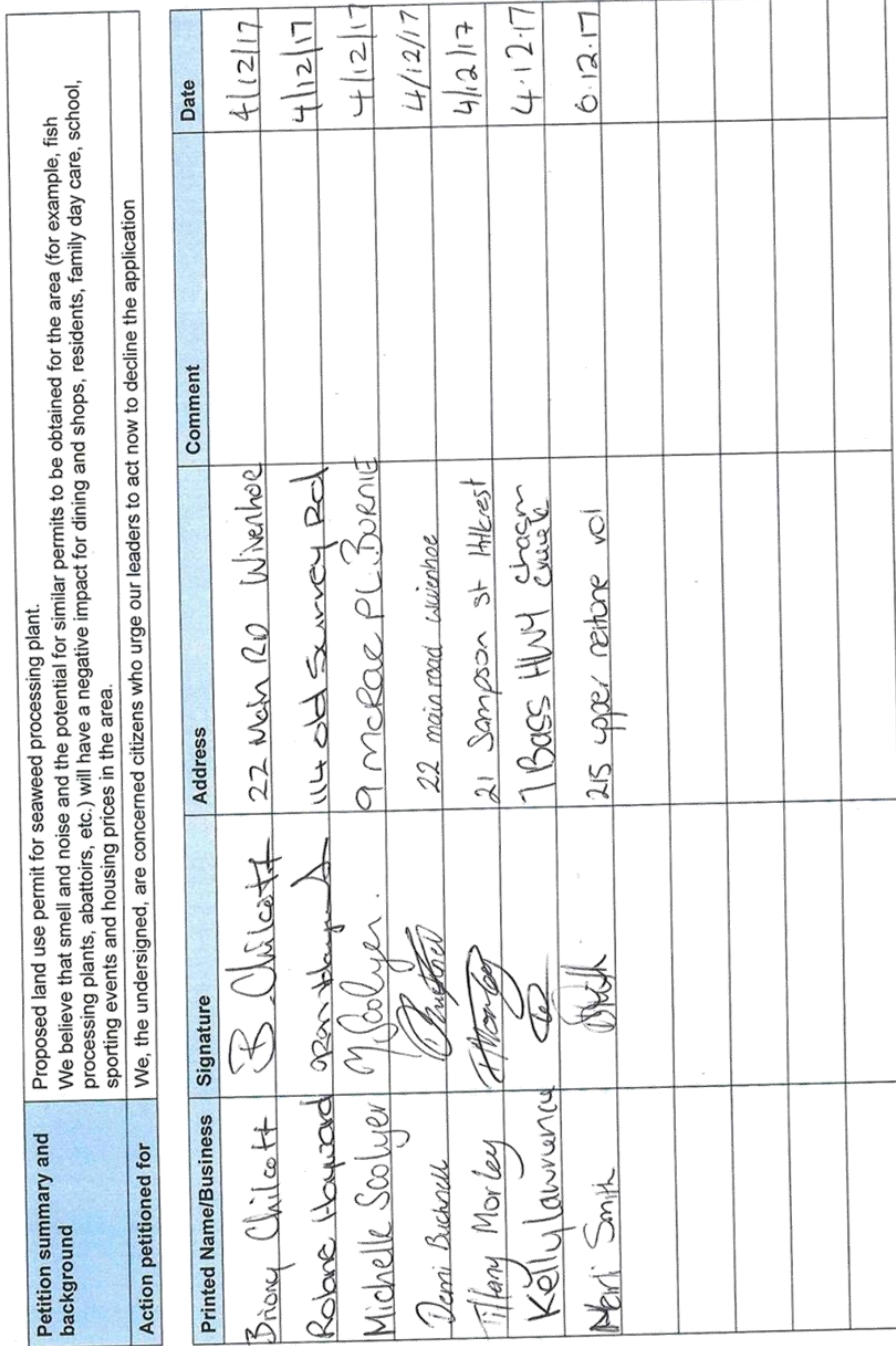 Petition summary and background
Proposed land use permit for seaweed processing plant.
We believe that smell and noise and the potential for similar permits to be obtained for the area (for example, fish
processing plants, abattoirs, etc.) will have a negative impact for dining and shops, residents, family day care, school,
sporting events and housing prices in the area.
Action petitioned for
We, the undersigned, are concerned citizens who urge our leaders to act now to decline the application
Printed Name/Business Signature Address Comment Date
Briony Chilcott B. Chilcott 22 Main RD Wivenhoe 4/12/17
Hayward 114 old Surrey Rd 4/12/17
Michelle Scolyer M Scolyer. 9 McRae PL. BURNIE 4/12/17
Demi 22 main road wivenhoe 4/12/17
Tiffany Morley TMorley 21 Sampson st Hillcrest 4/12/17
Kelly Lawrence 7 Bass HWY chasm creek 4.12.17
Smith 215 upper 6.12.17